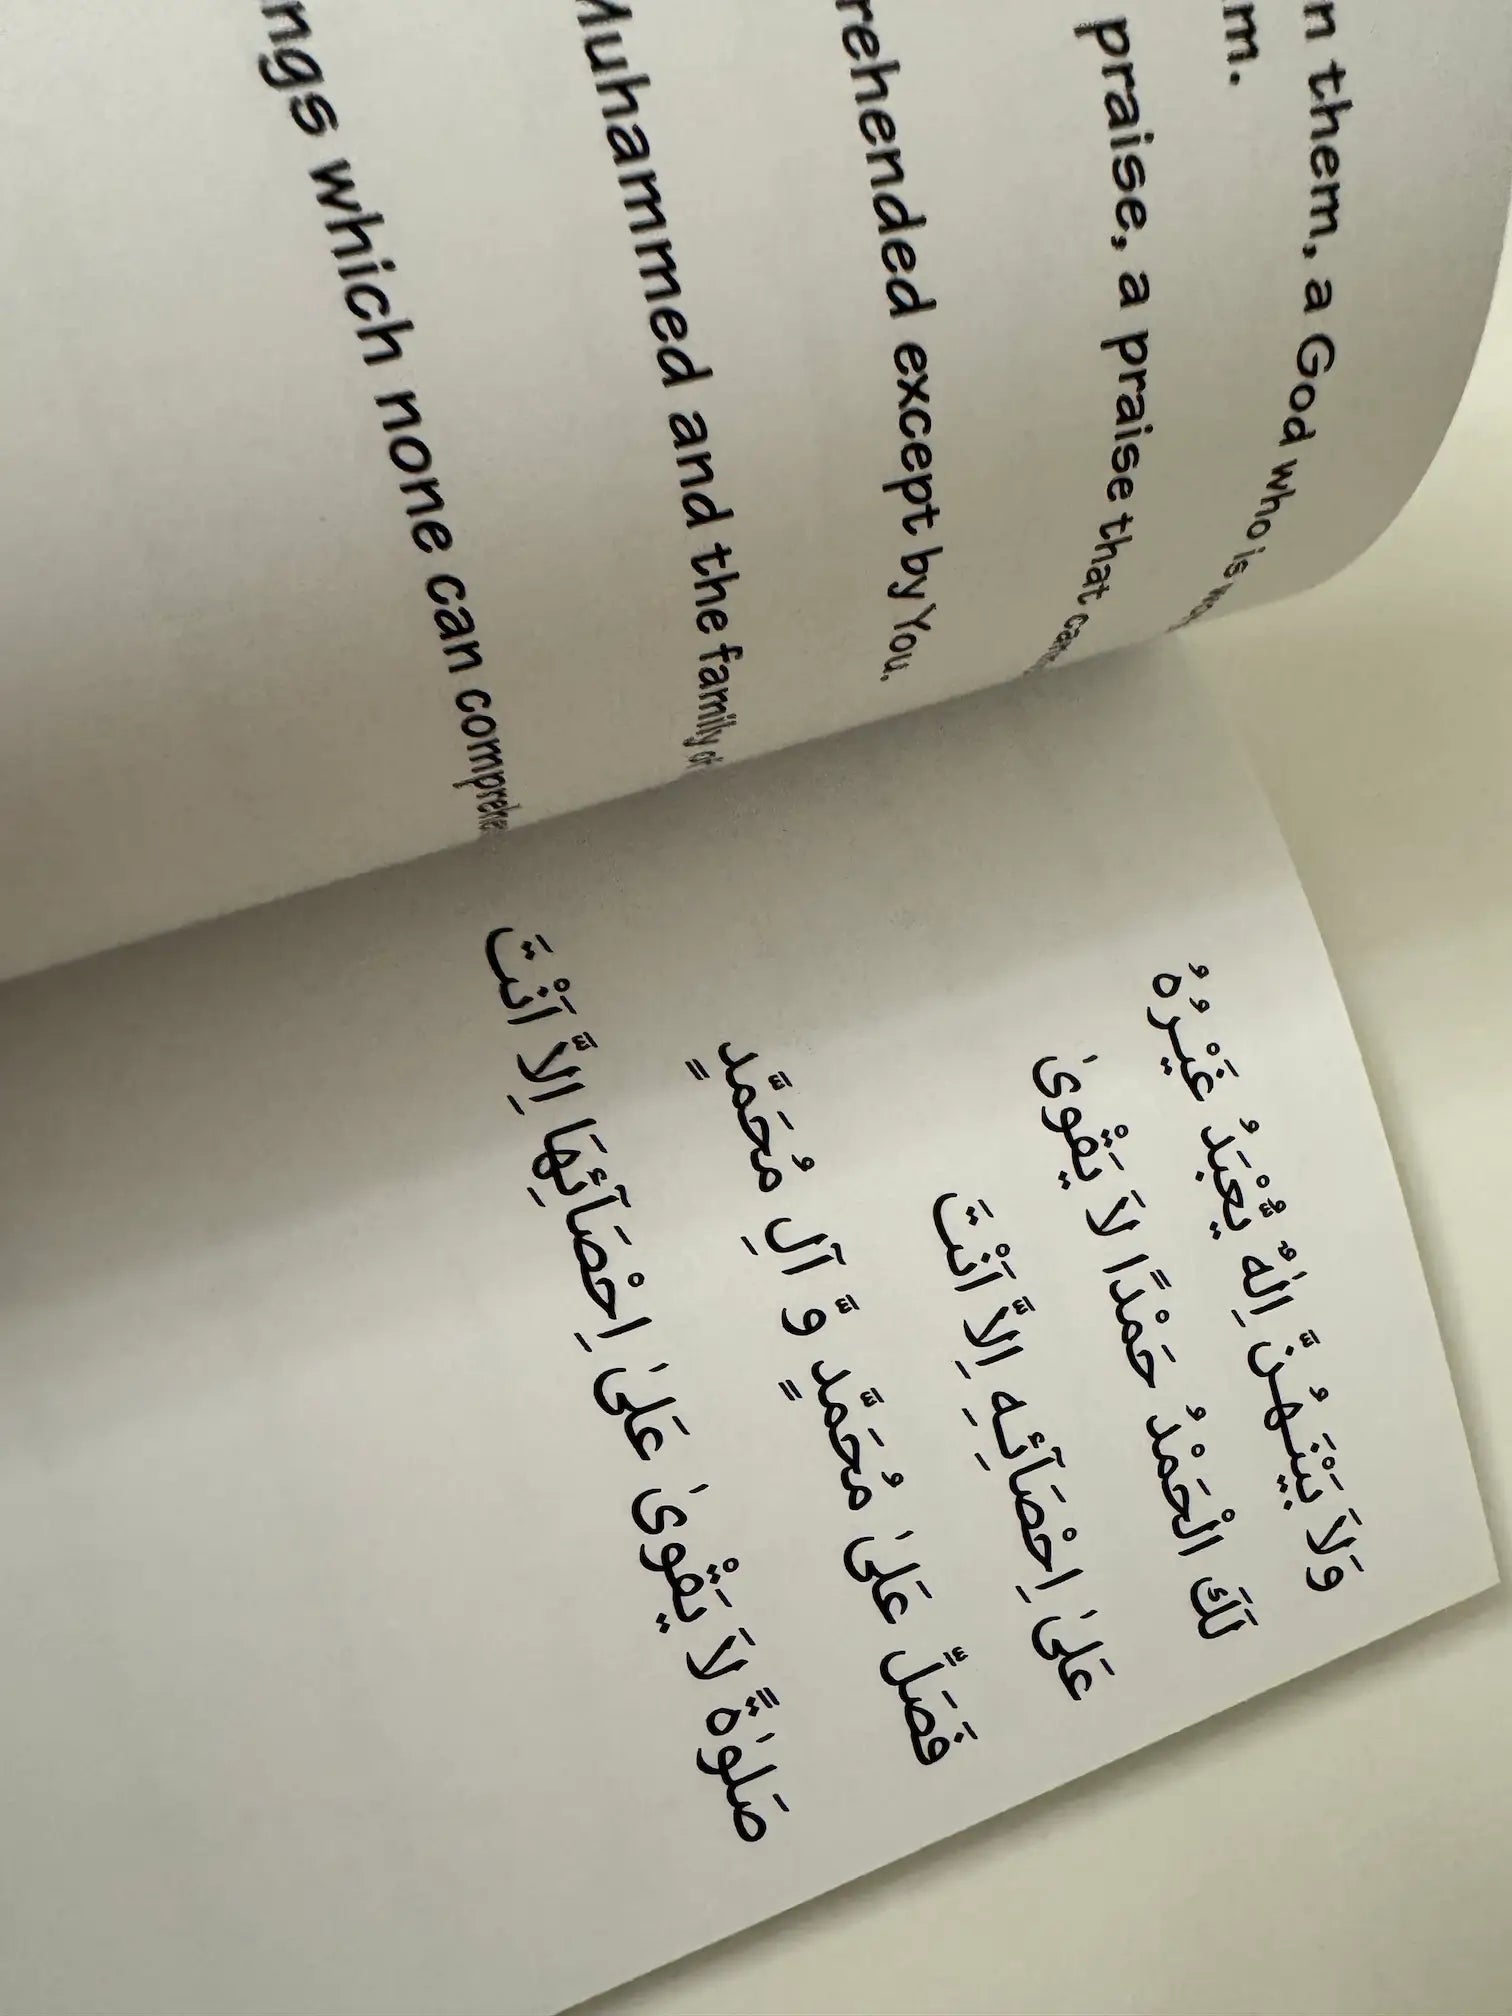 n them, a God who is
m.
praise, a praise that
rehended except by You.
Muhammed and the family of
ngs which none can
وَلَا بَيْنَهُنَّ اِلٰهٌ يُّعْبَدُ غَيْرُهُ
لَكَ الْحَمْدُ حَمْدًا لَا يَقْوىٰ
عَلىٰ اِحْصَآئِه اِلاَّ اَنْتَ
فَصَلِّ عَلىٰ مُحَمَّدٍ وَّ آلِ مُحَمَّدٍ
صَلوٰةً لَا يَقْوىٰ عَلىٰ اِحْصَآئِهَا اِلاَّ اَنْتَ